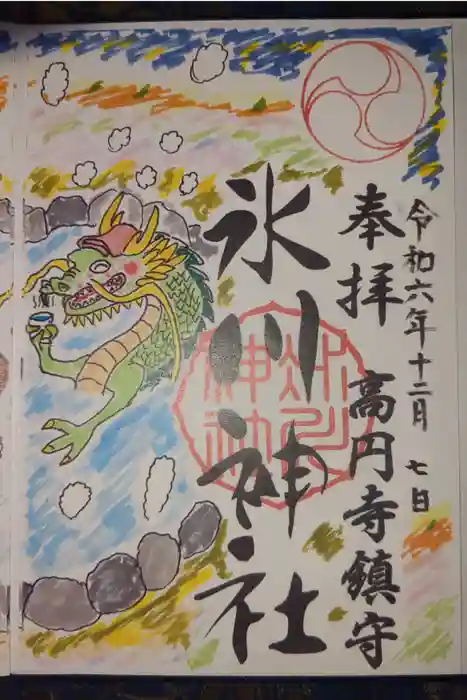 令和六年十二月 七日
奉拝 高円寺鎮守
氷川神社
氷川神社